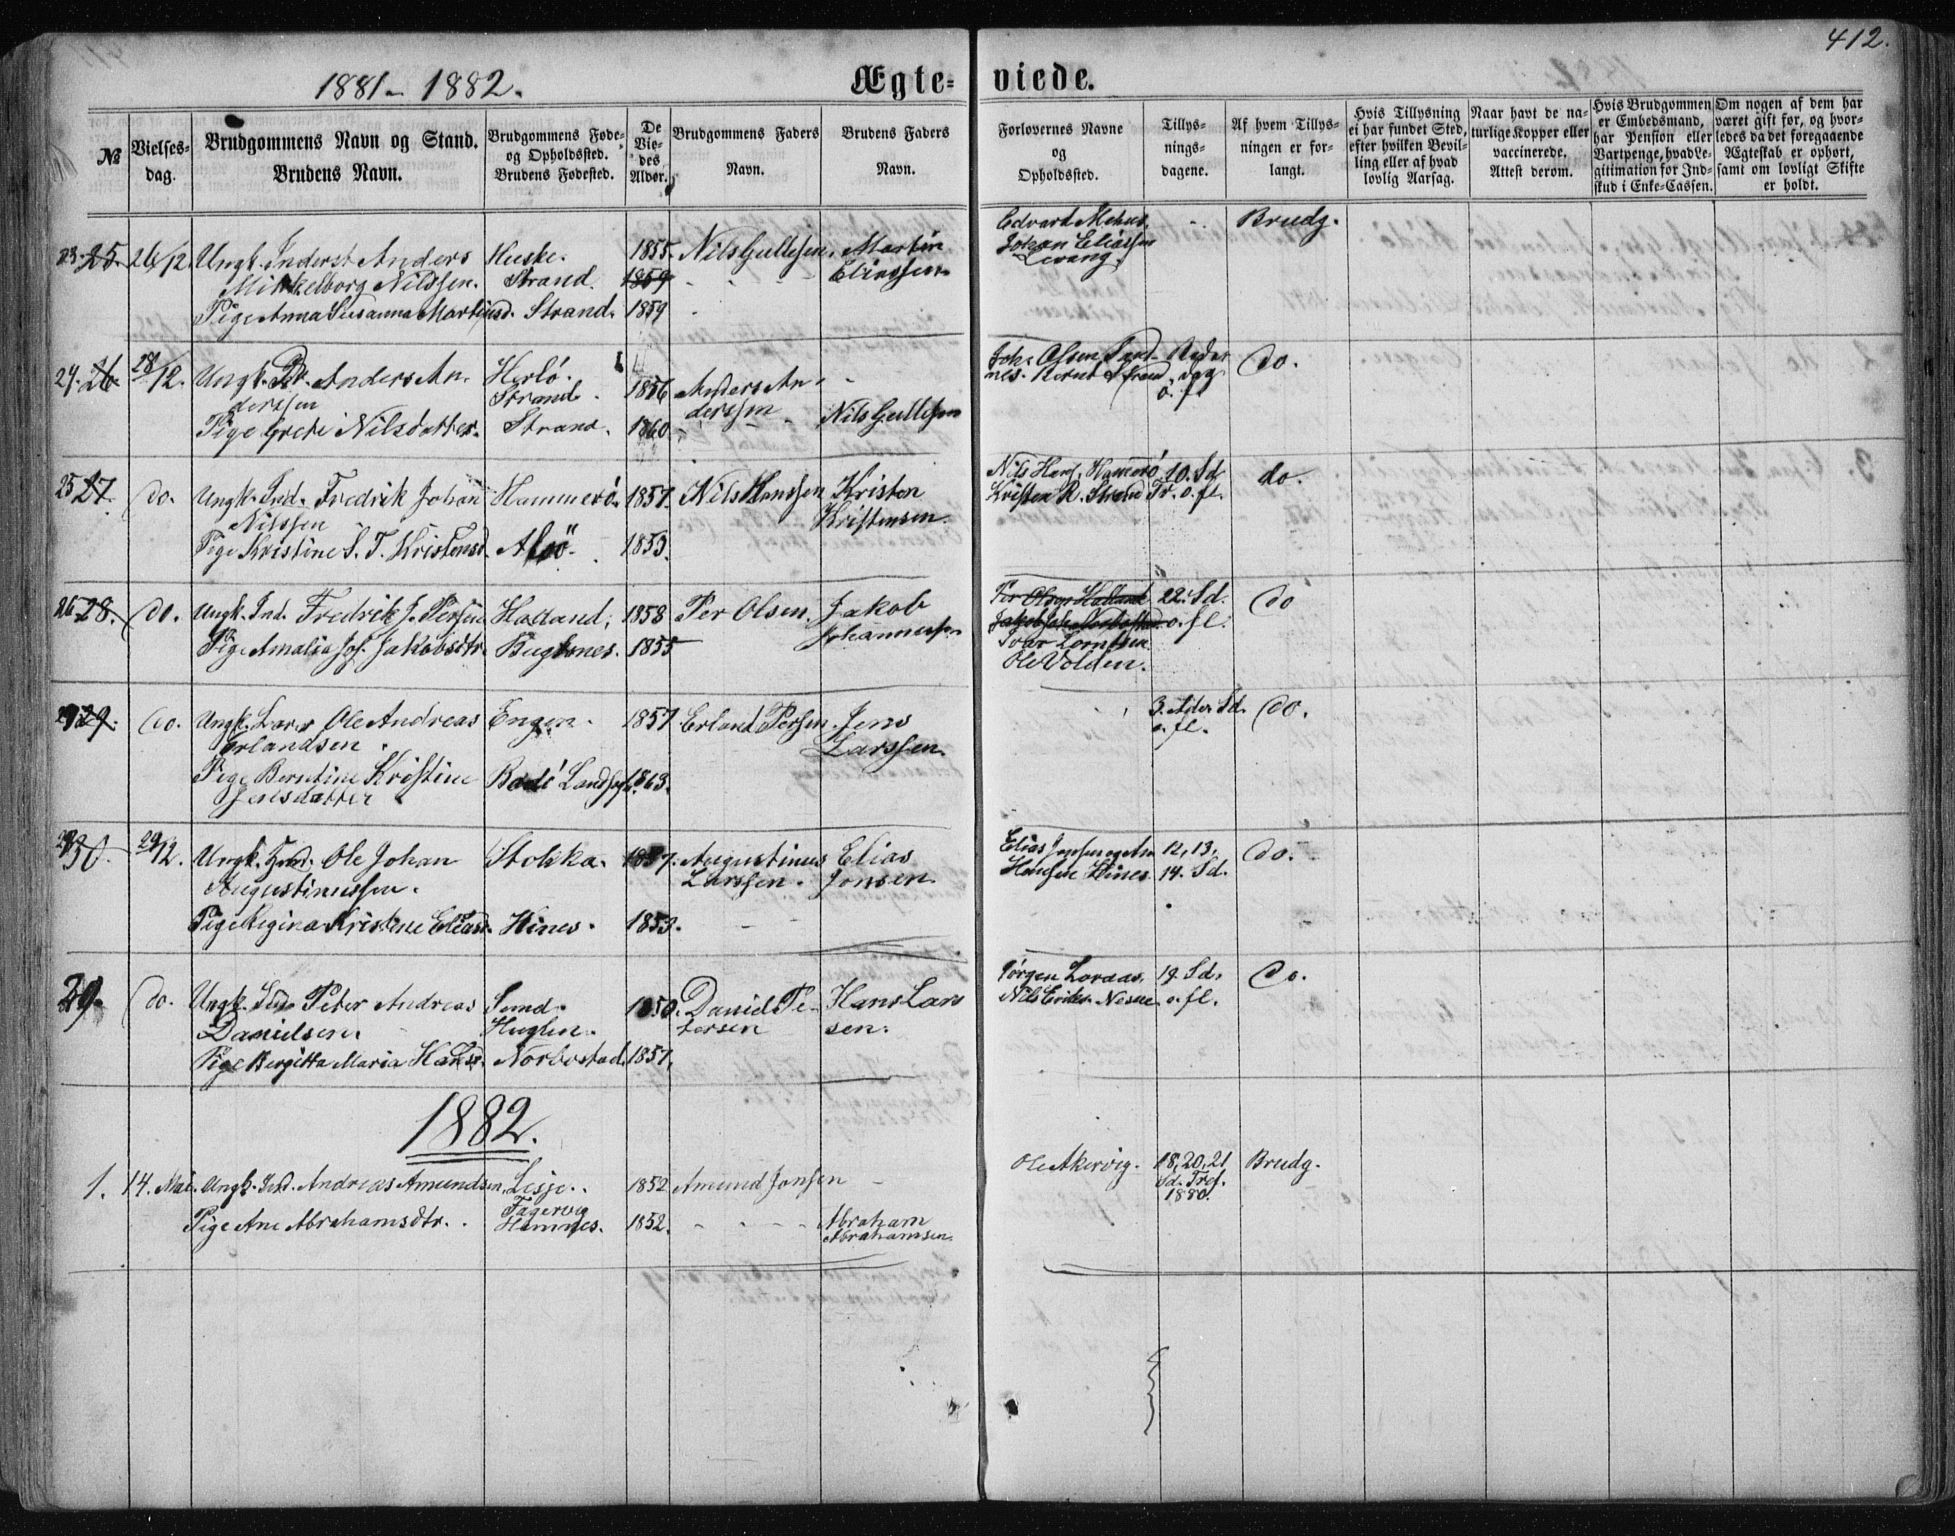 412.
1881 - 1882.
Ægte- viede.
№
Vielses-
dag.
Brudgommens Navn og Stand.
Brudens Navn.
Brudgommens Føde-
og Opholdssted.
Brudens Fødested.
De
Vie-
des
Alder.
Brudgommens Faders
Navn.
Brudens Faders
Navn.
Forlovernes Navne
og
Opholdssted.
Tillys-
nings-
dagene.
Af hvem Tillys-
ningen er for-
langt.
Hvis Tillysning
ei har fundet Sted,
efter hvilken Bevil-
ling eller af hvad
lovlig Aarsag.
Naar havt de na-
turlige Kopper eller
vaccinerede.
Attest derom.
Hvis Brudgommen
er Embedsmand,
har Pension eller
Vartpenge, hvad Le-
gitimation for Ind-
skud i Enke-Cassen.
Om nogen af dem har
været gift før, og hvor-
ledes da det foregaaende
Ægteskab er ophørt,
samt om lovligt Skifte
er holdt.
23. 25. 26/12. Ungk. Inderst Anders
Mikkelborg Nilssen.
Pige Anna Susanna Martinsd.
Huske.
Strand.
Strand.
1855.
1859
1859
Nils Gullesen.
Martin
Eliassen.
Edvard Mehus,
Johan Eliassen
Levang.
Brudg.
24. 26. 28/12. Ungk. Anders An-
derssen
Pige Grete Nilsdatter.
Herlö.
Strand.
Strand.
1856
1860.
Anders An-
derssen
Nils Gullesen
Joh. Olsen Sand-
nes.
o. fl.
do.
25 27. do. Ungk. Ind. Fredrik Johan
Nilssen
Pige Kristine S. T. Kristensd.
Hammerö.
Alsö.
1857.
1853.
Nils Hanssen
Kristen
Kristensen.
Nils Hans. Hamerö
Kristen R. Strand
10. Sd.
Tr. o. fl.
do.
26 28. do. Ungk. Ind. Fredrik J. Persen
Pige Amalia Jos. Jakobsdtr.
Halland.
Bugtnes.
1858
1855
Per Olsen.
Jakob
Johannessen
Per Olsen Halland
Ivar Lorntsen
Ole Volden.
22. Sd.
o. fl.
do
29. do. Ungk. Lærer Ole Andreas
Erlandsen.
Pige Berntine Kristine
Jensdatter
Engen.
Bodö Landsogn.
1857
1863.
Erland Persen.
Jens
Larssen.
3. Adv. Sd.
o. fl.
do.
30. 29/12. Ungk. Ind. Ole Johan
Augustinussen.
Pige Regina Kristine Eliasd.
Stokka.
Hines.
1857.
1853.
Augustinus
Larssen.
Elias
Jonsen.
Elias Jonsen og An
Hansen Hines.
12, 13,
14. Sd.
do.
29. do. Ungk. Ind. Peter Andreas
Danielsen.
Pige Bergitta Maria Hansd.
Sund.
Huglen.
Norbostad.
1850.
1857.
Daniel Pe-
tersen
Hans Lars
sen.
Jörgen Loraas,
Nils Eriks. Nesne
19. Sd.
o. fl.
do.
1882.
1. 14. Mai. Ungk. Ind. Andreas Amundsen,
Pige Ane Abrahamsdtr.
Lesje.
Fagervig
Hamnes.
1852
1852.
Amund Jonsen
Abraham
Abrahamsen.
Ole Akervig.
18, 20, 21
Sd. Tref.
1880.
Brudg.